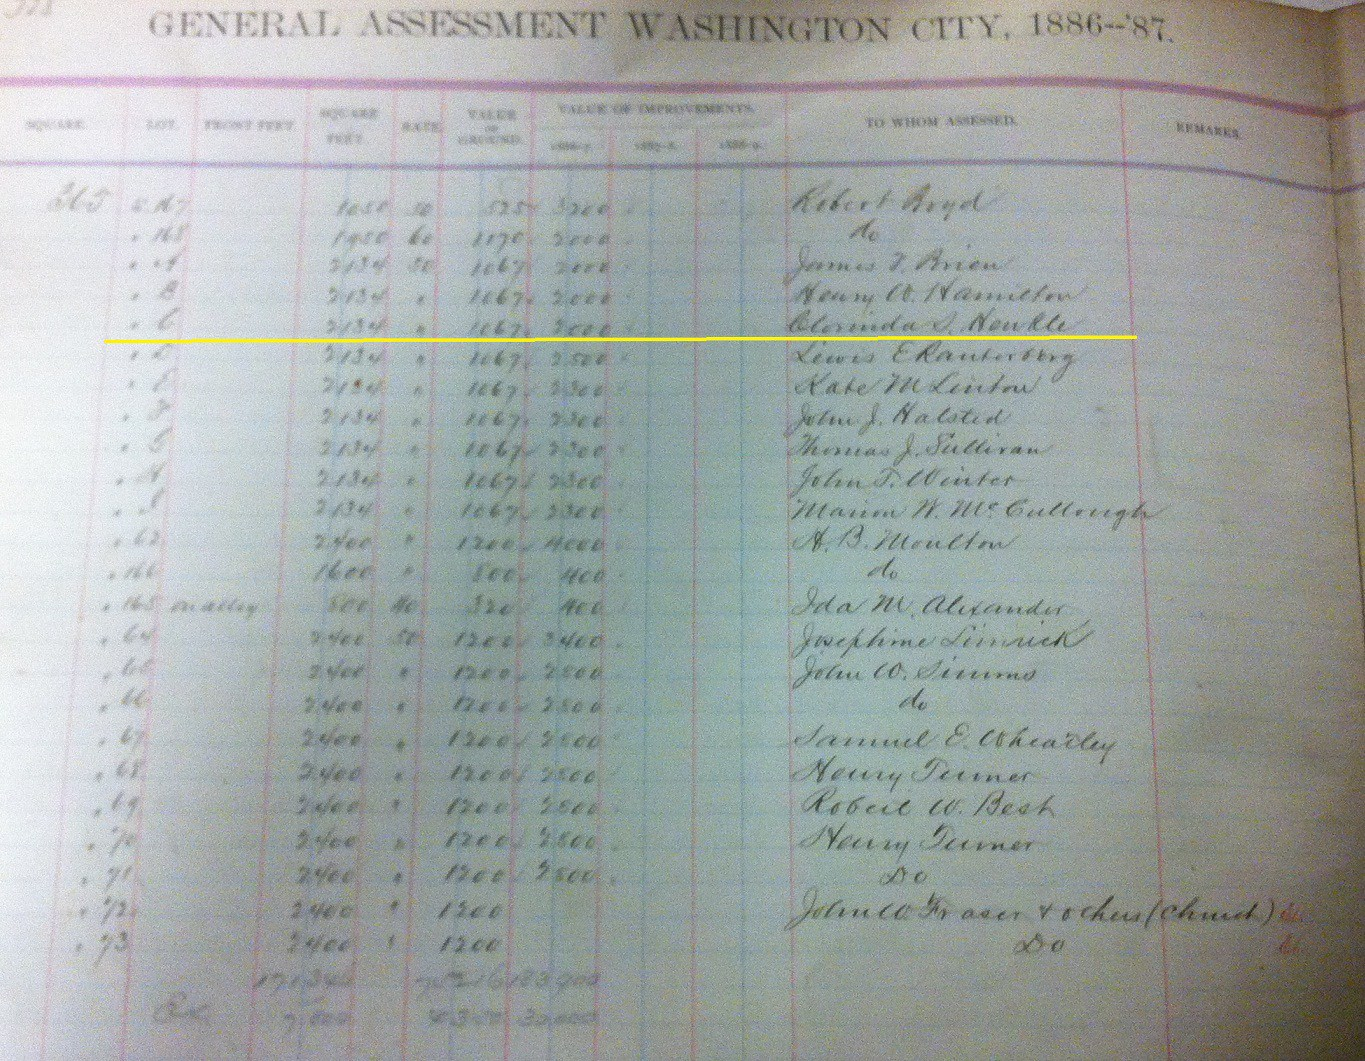 GENERAL ASSESSMENT WASHINGTON CITY, 1886--'87.
SQUARE. LOT. FRONT FEET. SQUARE FEET. RATE. VALUE OF GROUND. VALUE OF IMPROVEMENTS. TO WHOM ASSESSED. REMARKS.
1886-7. 1887-8. 1888-9.
365 167 1050 50 525 3200 Robert Boyd
" 168 1950 60 1170 2000 do
" A 2134 50 1067 2000 James T. Brien
" B 2134 " 1067 2000 Henry W. Hamilton
" C 2134 " 1067 2000 Clorinda S. Henkle
" D 2134 " 1067 2500 Lewis E Rauterberg
" E 2134 " 1067 2300 Kate M Linton
" F 2134 " 1067 2300 John J. Halsted
" G 2134 " 1067 2300 Thomas J. Sullivan
" H 2134 " 1067 2300 John T. Winter
" I 2134 " 1067 2300 Marion W. McCullough
" 63 2400 " 1200 4000 H. B. Moulton
" 166 1600 " 800 400 do
" 165 on alley 800 40 320 400 Ida M. Alexander
" 64 2400 50 1200 3400 Josephine
" 65 2400 " 1200 2800 John W. Simms
" 66 2400 " 1200 2800 do
" 67 2400 " 1200 2800 Samuel E. Wheatley
" 68 2400 " 1200 2800 Henry Turner
" 69 2400 " 1200 2800 Robert W. Best
" 70 2400 " 1200 2800 Henry Turner
" 71 2400 " 1200 2800 Do
" 72 2400 " 1200 John W Fraser & others (Church)
" 73 2400 " 1200 Do